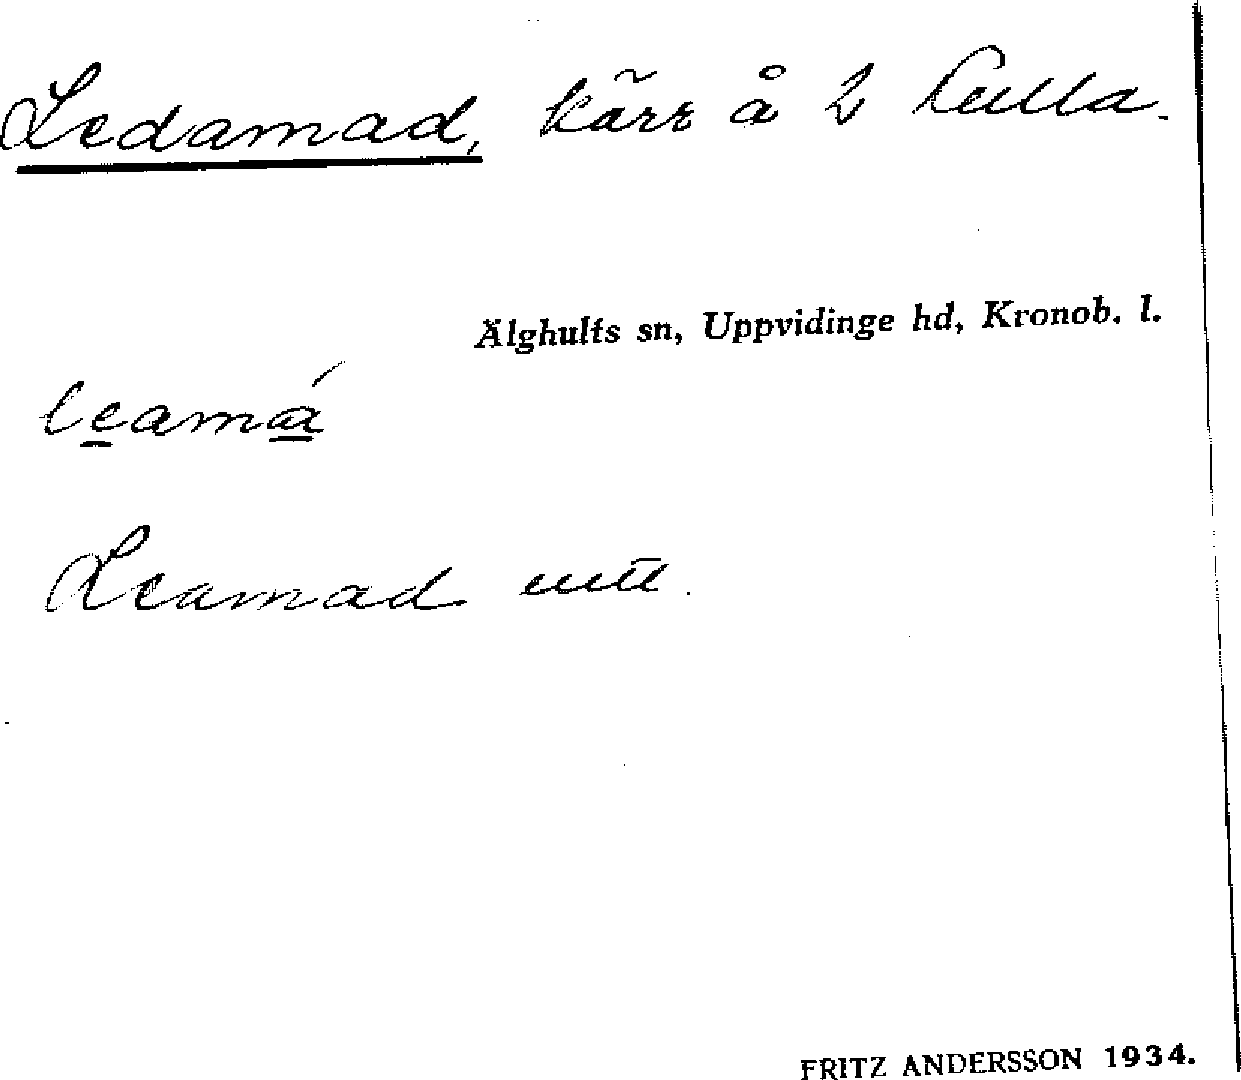 Ledamad, kärr å 2 Kulla.
Älghults sn, Uppvidinge hd, Kronob. l.
leamá
Leamad
FRITZ ANDERSSON 1934.